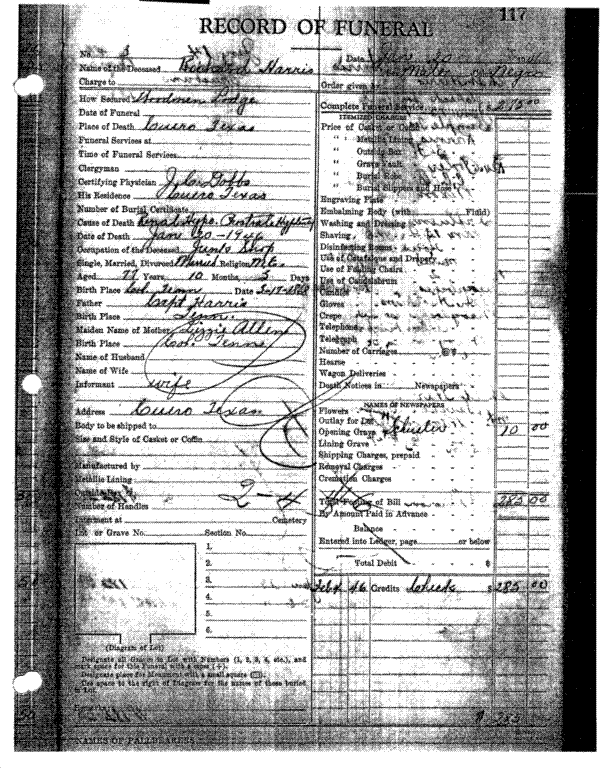 117
RECORD OF FUNERAL
No. 3
Date Jan 20
Name of the Deceased Harris
Male Negro
Charge to
Order given
How Secured Woodmen Lodge
Complete Funeral Service $275 00
Date of Funeral
ITEMIZED CHARGES
Place of Death Cuero Texas
Price of Casket or Coffin
Funeral Services at
" Metallic Lining
Time of Funeral Services
" Outside Box
Clergyman
" Grave Vault
Certifying Physician
" Burial Robe
His Residence Cuero Texas
" Burial Slippers and Hose
Number of Burial Certificate
Engraving Plate
Cause of Death
Embalming Body (with Fluid)
Date of Death Jan 20-1946
Washing and Dressing
Occupation of the Deceased Junk Shop
Shaving
Single, Married, Divorced Married Religion
Disinfecting Rooms
Use of Catafalque and Drapery
Aged 77 Years 10 Months 3 Days
Use of Folding Chairs
Use of Candelabrum
Birth Place Tenn Date
Candles
Father Capt Harris
Gloves
Birth Place Tenn.
Crepe
Maiden Name of Mother Lizzie Allen
Telephone
Birth Place Tenn
Telegraph
Name of Husband
Number of Carriages
Name of Wife
Hearse
Informant wife
Wagon Deliveries
Death Notices in Newspapers
Address Cuero Texas
NAMES OF NEWSPAPERS
Flowers
Body to be shipped to
Outlay for Lot
Size and Style of Casket or Coffin
Opening Grave 10 00
Lining Grave
Shipping Charges, prepaid
Manufactured by
Removal Charges
Metallic Lining
Cremation Charges
Number of Handles
2-4-46
Total Footing of Bill 285 00
Interment at Cemetery
By Amount Paid in Advance
Lot or Grave No. Section No.
Balance
Entered into Ledger, page or below
1.
2.
Total Debit $
3.
Feb 4 46 Credits Check $285 00
4.
5.
6.
(Diagram of Lot)
Designate all Graves in Lot with Numbers (1, 2, 3, 4, etc.), and
mark space for this Funeral with a cross (+).
Designate place for Monument with a small square
Use space to the right of Diagram for the names of those buried
in Lot.
$ 285
NAMES OF PALLBEARERS